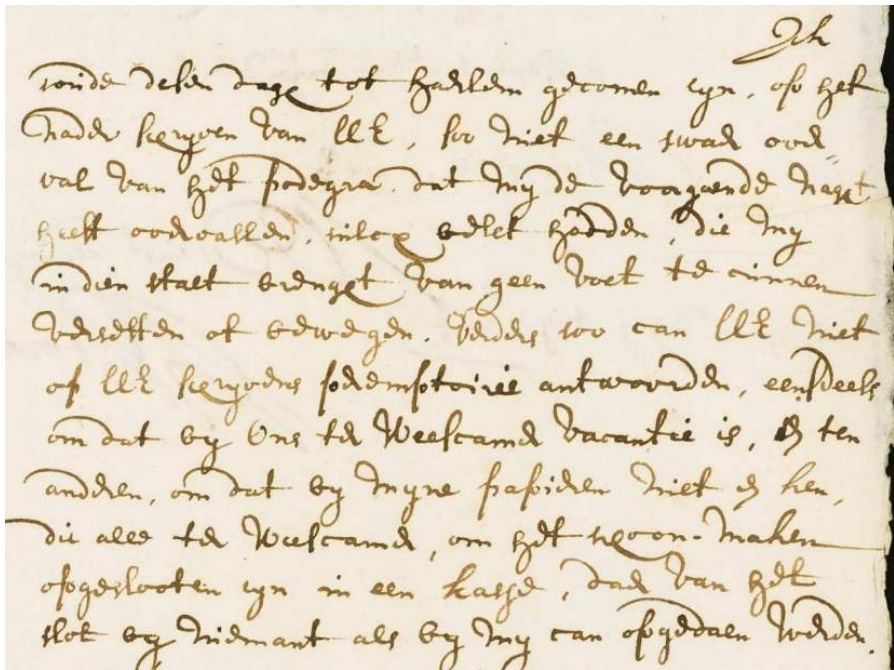 Ick
soude desen dage tot Haerlem gecomen syn, op het
nader scryven van UE, soo niet een swaer over-
val van het podegra, dat my de voorgaende nagt
heeft overvallen, sulcx belet hadden, die my
in dien staet brengt van geen voet te cunnen
versetten of bewegen. Verders soo can UE niet
op UE scryvens peremptoirie antwoorden, eensdeels
om dat by Ons ter Weescamer vacantie is, en ten
anderen, om dat by myne papieren niet en ken,
die alle ter Weescamer, om het schoon-maken
opgeslooten syn in een kasse, daer van het
slot by niemant als by my can opgedaen werden.